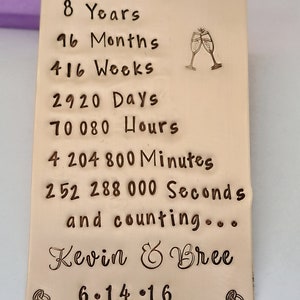 8 Years
96 Months
416 Weeks
2920 Days
70 080 Hours
4 204 800 Minutes
252 288 000 Seconds
and counting...
Kevin & Bree
6•14•16